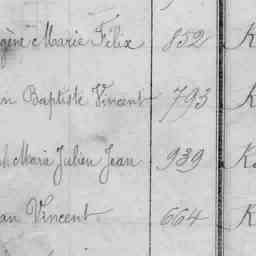 gène Marie Félix 852 K
an Baptiste Vincent 793 K
h Marie Julien Jean 939 K
an Vincent 664 K